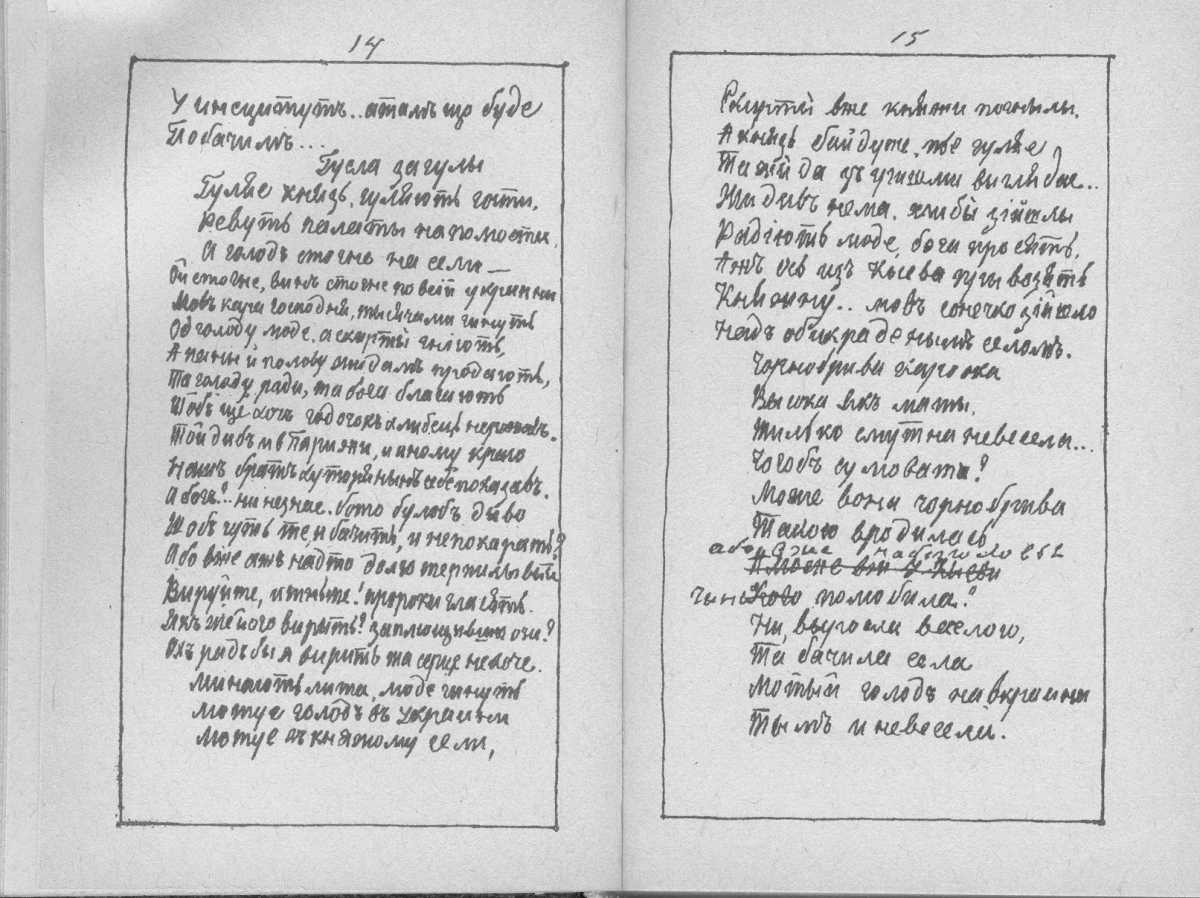 14
У инсцитутъ.. атамъ що буде
Побачимъ...
Гусла загулы
Гуляе князь, гуляють гости,
Ревуть палаты на помости,
А голодъ стогне на сели —
Ой стогне, винъ стогне по всій украини
Мовъ кара господня, тысячами гинуть
Одъ голоду люде. а скирты гніють,
А паны й полову жидамъ продають,
Та голоду ради, та бога благають
Щобъ ще хочъ годочокъ хлибецъ
Тойдибъ и в Парижи, и иному краю
Нашъ братъ хуторянынъ себе показавъ.
А богъ?.. ни незнае. бото булобъ диво
Щобъ чуть те и бачить, и непокарать?
Або вже ажъ надто
Вируйте, пророки гласять.
Якъ же його вирыть? заплющившы очи?
Охъ радъ бы я вирить та серце нехоче.
Минають лита, люде гинуть
Лютуе голодъ въ украини
Лютуе въ княжому сели,
15
Скирты вже княжи погнылы.
А князь байдуже, пье гуляе
Та жида зъ грішми виглядае..
Жидивъ нема. хлибы зійшлы
Радіють люде, бога просять,
Ажъ ось изъ Кыева
Княжну.. мовъ сонечко зійшло
Надъ обикраденымъ селомъ.
Чорнобрива кароока
Высока якъ маты.
Тилько смутна невесела...
Чогобъ сумовати?
Може вона чорнобрива
Такою вродилась
або може
А може
Кого полюбила?
Ни, выросла веселого,
Та бачила села
Лютый голодъ на вкраини
Тымъ и невесели.